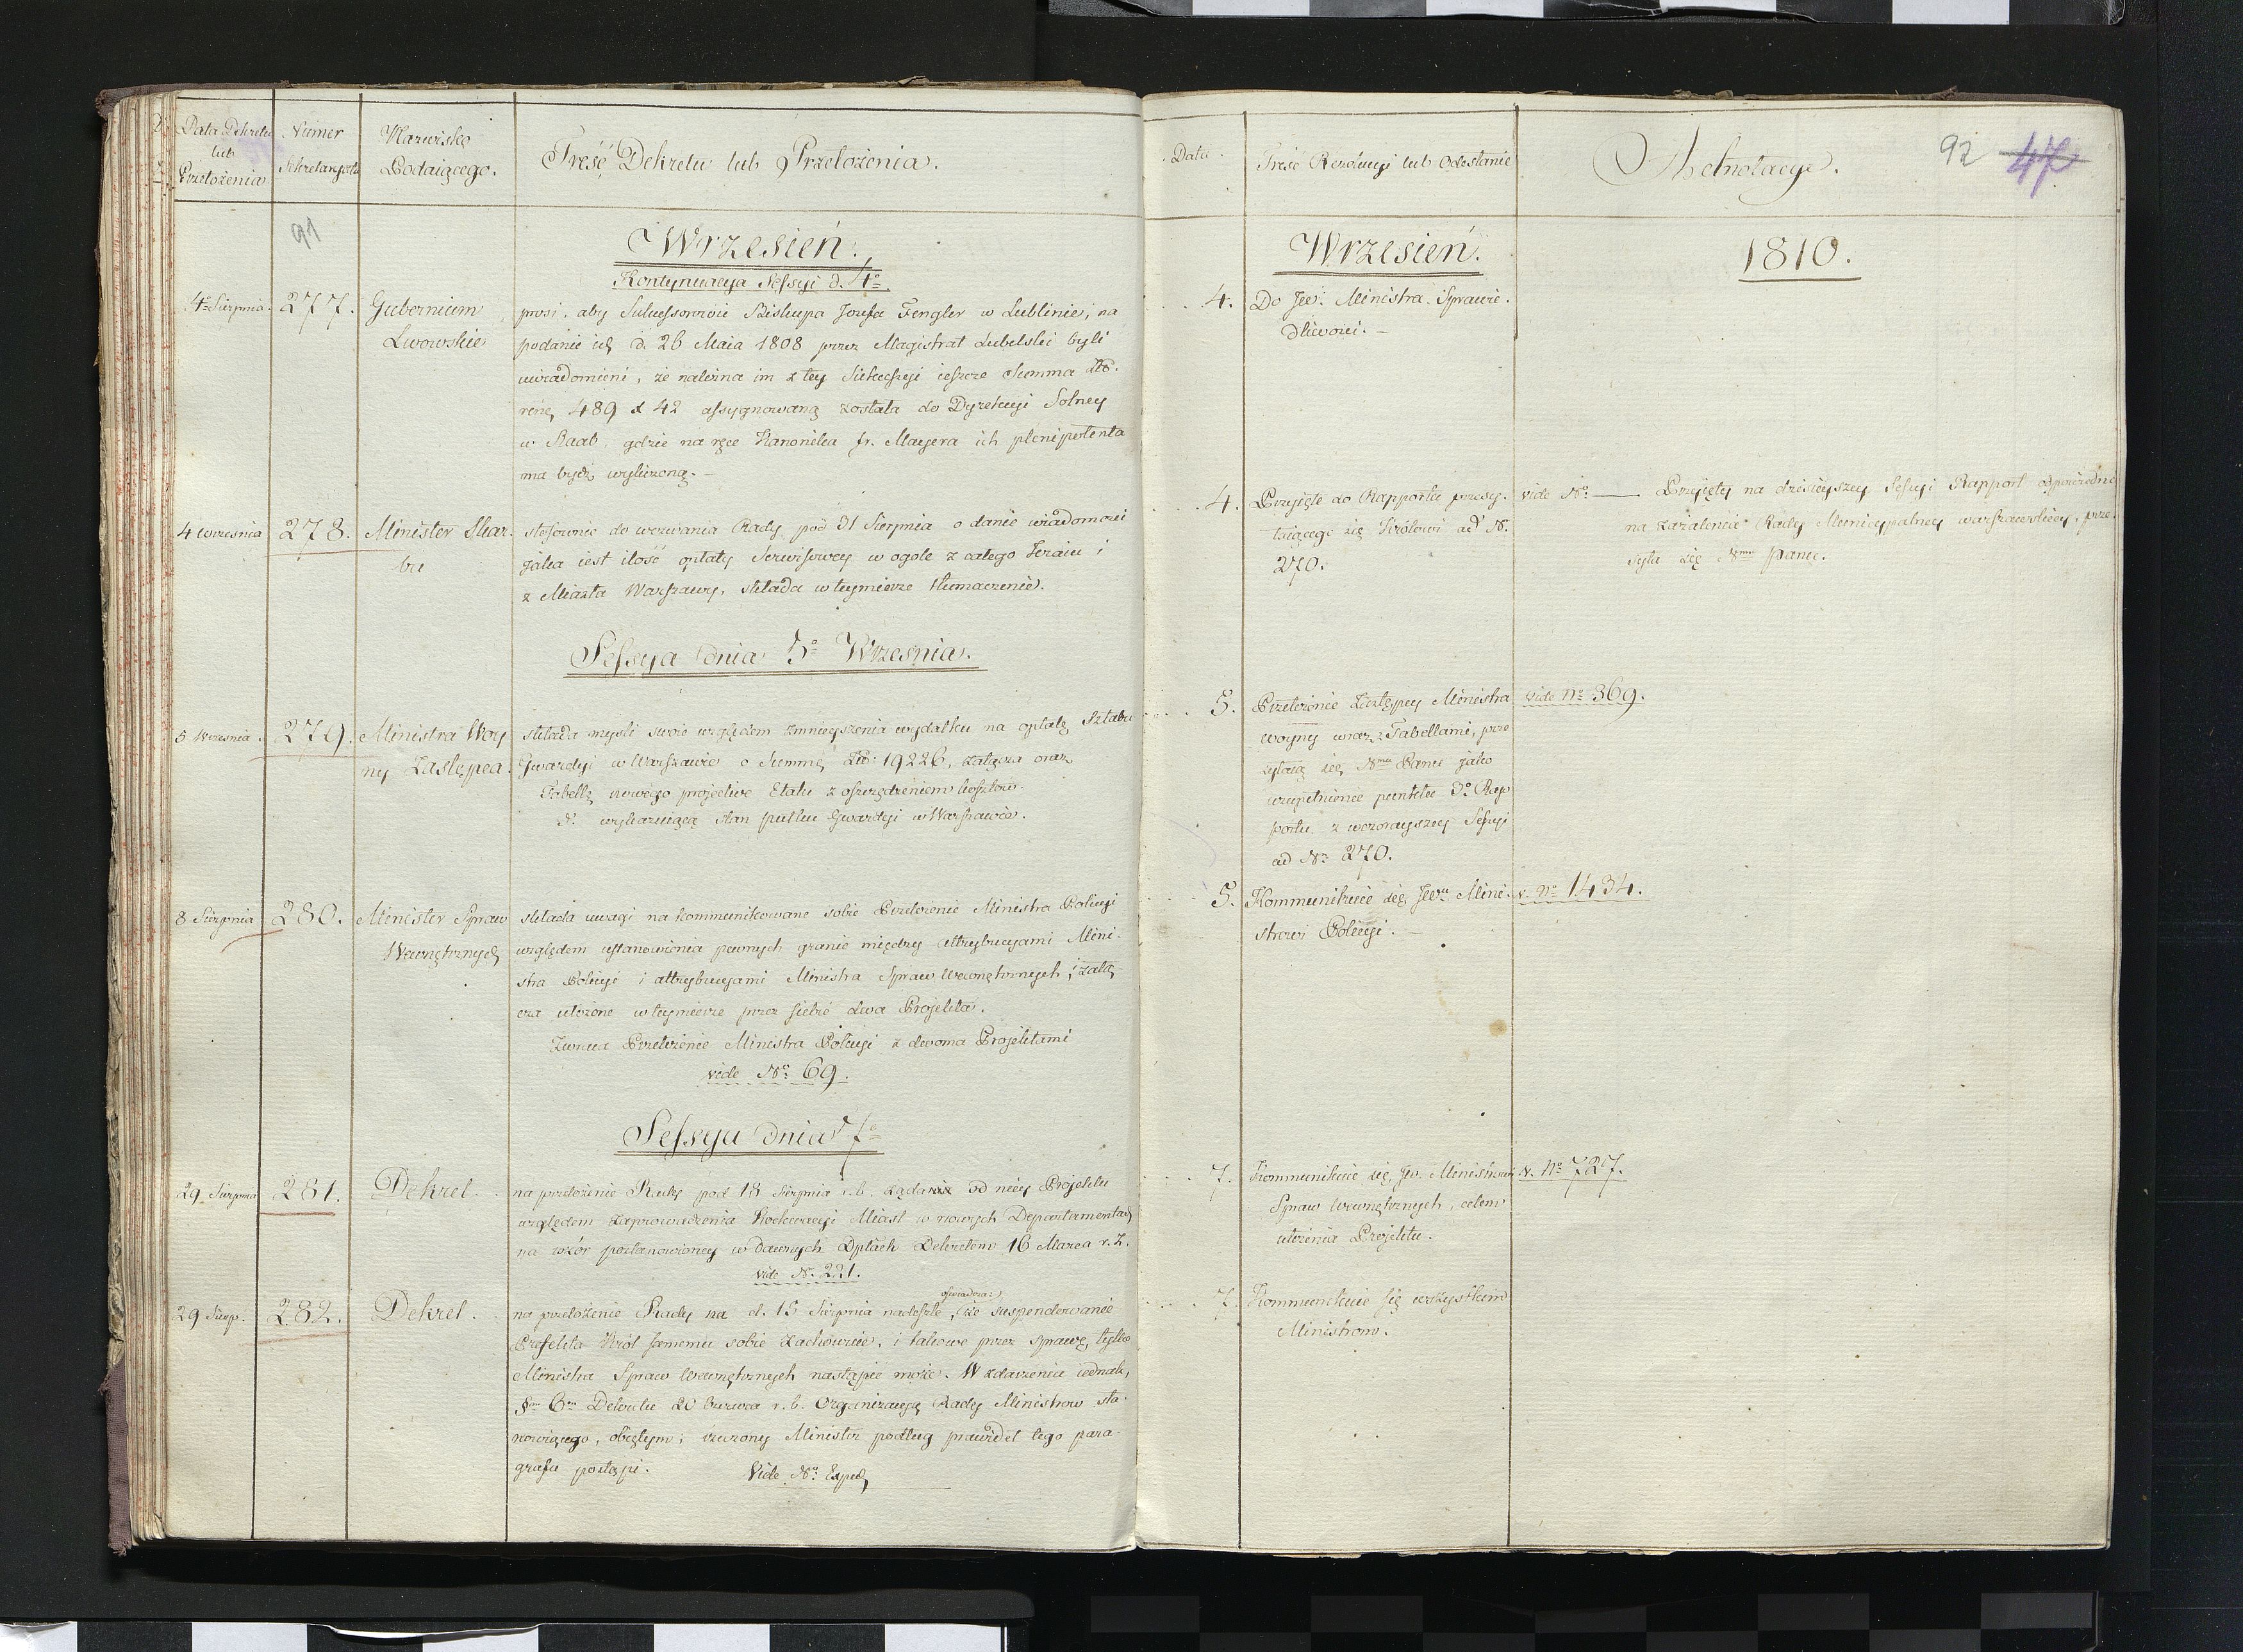 Data Dekretu
lub
Przełożenia
Numer
Sekretaryatu
Nazwisko
Podaiącego.
Treść Dekretu lub Przełożenia.
91
Wrzesień.
Kontynuacya Sessyi d. 4º
4º Sierpnia. 277. Gubernium
Lwowskie
prosi, aby Sukcessorowie Biskupa Jozefa Fengler w Lublinie, na
podanie ich d. 26 Maia 1808 przez Magistrat Lubelski byli
uwiadomieni, że należna im z tey Sukcessyi ieszcze Summa
489 x 42 assygnowaną została do Dyrekcyi Solney
w Raab, gdzie na ręce Kanonika fr. Mayera ich plenipotenta
ma bydź wyliczoną.
4 Wrzesnia 278. Minister Skar-
bu
stosownie do wezwania Rady pod 31 Sierpnia o danie wiadomości
jaka iest ilość opłaty Serwisowey w ogole z całego Kraiu i
z Miasta Warszawy, składa w teymierze tłumaczenie.
Sessya dnia 5º Wrzesnia.
5 Wrzesnia. 279. Ministra Woy
ny Zastępca.
składa mysli swoie względem zmnieyszenia wydatku na opłatę Sztabu
Gwardyi w Warszawie o Summę Zło: 19226, załącza oraz
Tabellę nowego projective Etatu z oszczędzeniem kosztów.
d. wykazuiącą stan pułku Gwardyi w Warszawie.
8 Sierpnia 280. Minister Spraw
Wewnętrznych
składa uwagi na kommunikowane sobie Przełożenie Ministra Policyi
względem ustanowienia pewnych granic między attrybucyami Mini-
stra Policyi i attrybucyami Ministra Spraw Wewnętrznych, i załą-
cza ułożone w teymierze przez siebie dwa Projekta.
Zwraca Przełożenie Ministra Policyi z dwoma Projektami
vide Nº 69.
Sessya dnia 7º
29. Sierpnia 281. Dekret.
na przełożenie Rady pod 18 Sierpnia r.b. żąda od niey Projektu
względem zaprowadzenia Miast w nowych Departamentach
na wzór postanowioney w dawnych Dptach Dekretem 16 Marca r. z.
vide Nº 221.
29 Sierp. 282. Dekret.
oswiadcza:
na przełożenie Rady na d. 15 Sierpnia nadeszłe, że suspendowanie
Prefekta Król samemu sobie zachowuie, i takowe przez sprawę, tylko
Ministra Spraw Wewnętrznych nastąpić może. W zdarzeniu iednak,
§m 6m Dekretu 20 Czerwca r.b. Organizacyą Rady Ministrow sta-
nowiącego, obiętym; rzeczony Minister podług prawideł tego para-
grafu postąpi.
Vide Nº Exped
Data.
Treść Rezolucyi lub Odesłanie
Adnotacye.
92 47
Wrzesień.
1810.
4. Do Jw. Ministra Sprawie-
dliwosci.
4. Przyięte do Rapportu przesy-
łaiącego się Królowi ad N.
270.
vide Nº Przyięty na dzisieyszey Sessyi Rapport odpowiedni
na zażalenie Rady Municypalney warszawskiey, prze-
syła się Nmu Panu.
5. Przełożenie Zastępcy Ministra
woyny wraz z Tabellami, prze
syłaią się Nmu Panu jako
uzupełnienie punktu 3º Rap
portu z wczorayszey Sessyi
ad Nº 270.
vide Nº 369.
5. Kommunikuie się Jwmu Mini-
strowi Policyi.
v. Nº 1434.
7. Kommunikuie się Jw. Ministrowi
Spraw Wewnętrznych, celem
ułożenia Projektu.
v. Nº 727.
7. Kommunikuie się wszystkim
Ministrom.